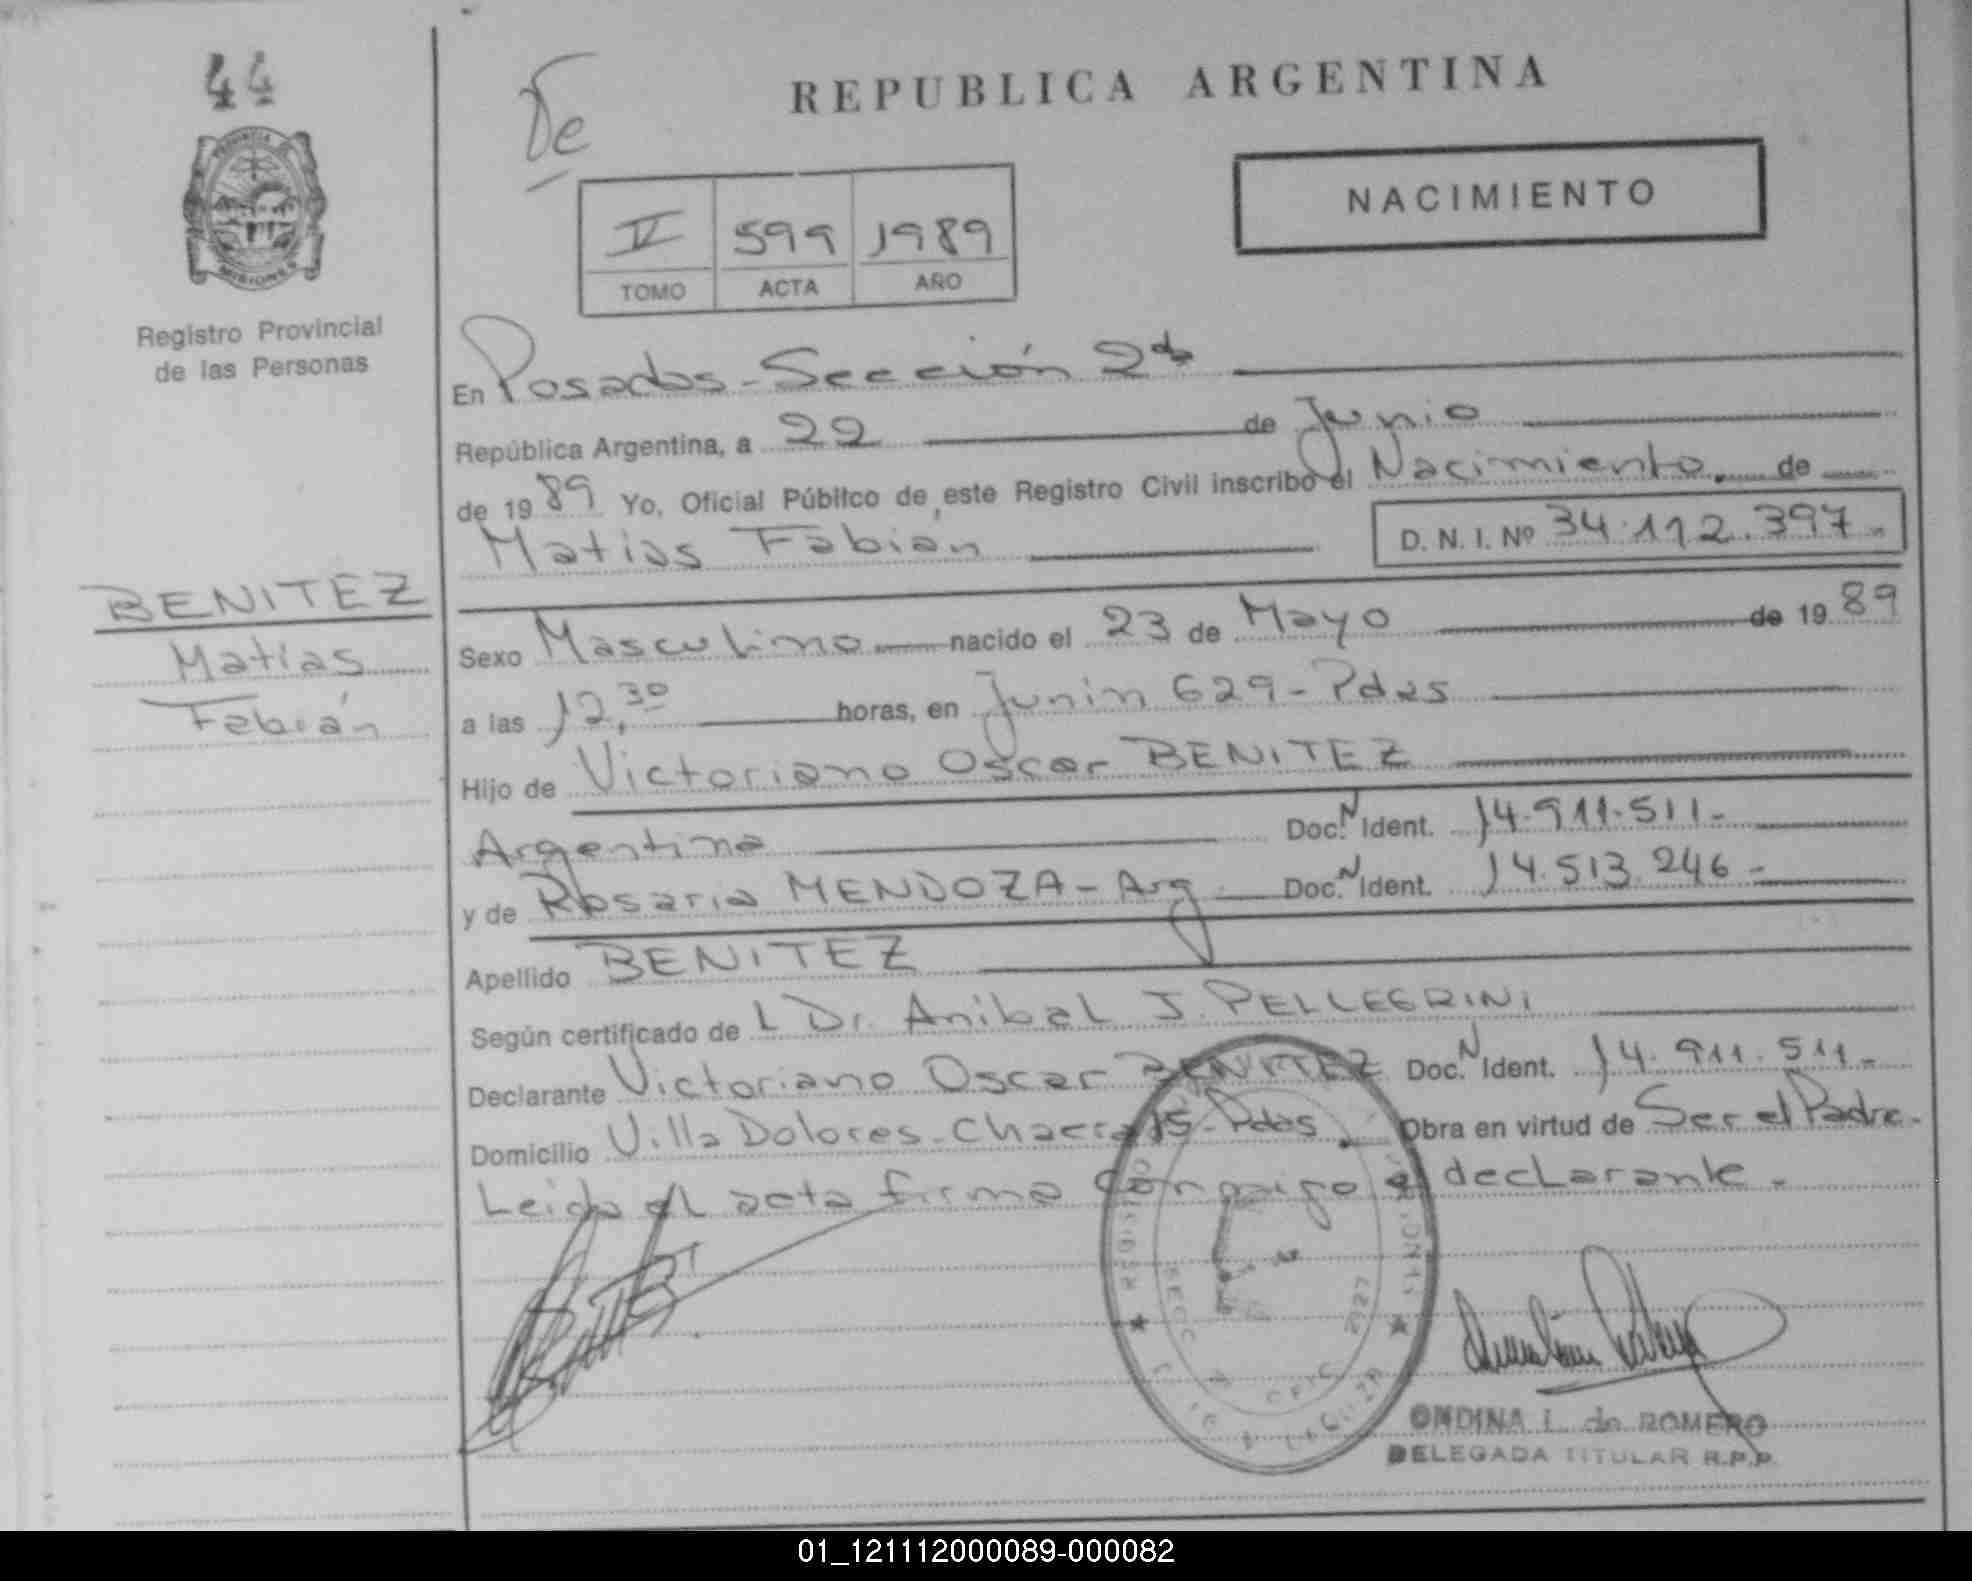 44
De
REPUBLICA ARGENTINA
NACIMIENTO
IV 599 1989
TOMO ACTA AÑO
PROVINCIA
MISIONES
Registro Provincial
de las Personas
En Posadas - Sección 2da
República Argentina, a 22 de Junio
de 1989 Yo, Oficial Público de este Registro Civil inscribo el Nacimiento de
Matias Fabian D. N. I. Nº 34.112.397.-
BENITEZ
Matías
Fabián
Sexo Masculino nacido el 23 de Mayo de 1989
a las 12,30 horas, en Junin 629 - Pdas
Hijo de Victoriano Oscar BENITEZ
Argentina Doc. N Ident. 14.911.511-
y de Rosaria MENDOZA - Arg. Doc. N Ident. 14.513.246-
Apellido BENITEZ
Según certificado del Dr. Anibal J. PELLEGRINI
Declarante Victoriano Oscar BENITEZ Doc. N Ident. 14.911.511-
Domicilio Villa Dolores - Chacra 15 - Pdas. Obra en virtud de Ser el Padre.-
Leida el acta firma conmigo el declarante.-
ONDINA L. de ROMERO
DELEGADA TITULAR R.P.P.
01_121112000089-000082